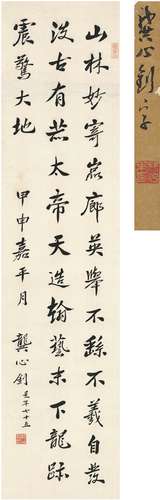 山林妙寄嵓廊英舉不繇不羲自發
淡古有赫太帝天造翰藝末下龍跡
震驚大地
甲申嘉平月
龔心釗
是年七十五
龔心釗